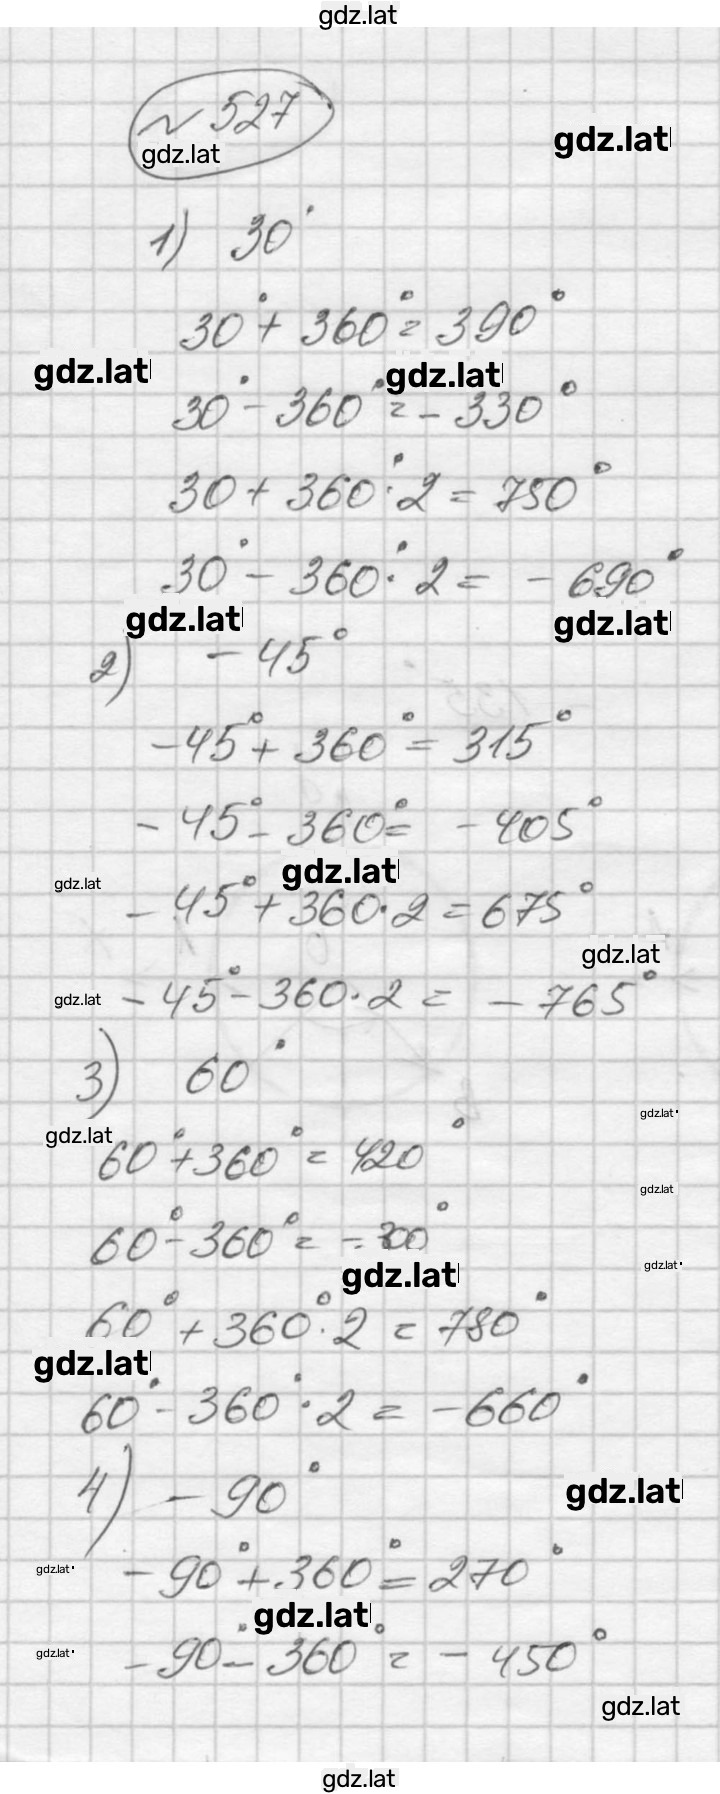 gdz.lat
№ 527
gdz.lat
gdz.lat
1) 30°
30° + 360° = 390°
gdz.lat
gdz.lat
30° - 360° = - 330°
30 + 360° · 2 = 750°
30° - 360° · 2 = - 690°
gdz.lat
gdz.lat
2) - 45°
-45° + 360° = 315°
- 45° - 360° = - 405°
gdz.lat
gdz.lat
- 45° + 360 · 2 = 675°
gdz.lat
gdz.lat
- 45° - 360 · 2 = - 765°
3) 60°
gdz.lat
gdz.lat
60° + 360° = 420°
gdz.lat
60° - 360° = - 300°
gdz.lat
gdz.lat
60° + 360° · 2 = 780°
gdz.lat
60° - 360° · 2 = - 660°
4) - 90°
gdz.lat
gdz.lat
- 90° + 360° = 270°
gdz.lat
gdz.lat
- 90° - 360° = - 450°
gdz.lat
gdz.lat